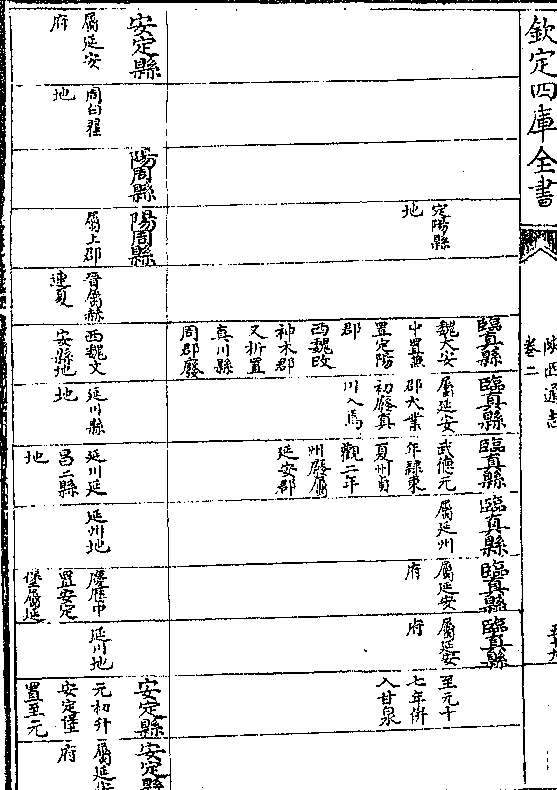 欽定四庫全書
陝西通志
卷二
定陽縣
地
臨真縣
魏大安
中置兼
置定陽
郡
西魏改
神木郡
又析置
真川縣
周郡廢
臨真縣
屬延安
郡大業
初廢真
川入焉
臨真縣
武德元
年隸東
夏州貞
觀二年
州廢屬
延安郡
臨真縣
屬延州
臨真縣
屬延安
府
臨真縣
屬延安
府
至元十
七年併
入甘泉
安定縣
屬延安
府
周白翟
地
陽周縣
陽周縣
屬上郡
晉屬赫
連夏
西魏文
安縣地
延川縣
地
延川延
昌二縣
地
延州地
慶歷中
置安定
堡屬延
延川地
安定縣
元初升
安定堡
置至元
安定縣
屬延安
府